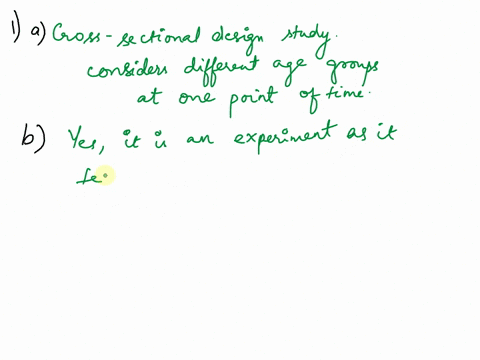 1) a) Cross-sectional design study.
considers different age groups
at one point of time.
b) Yes, it is an experiment as it